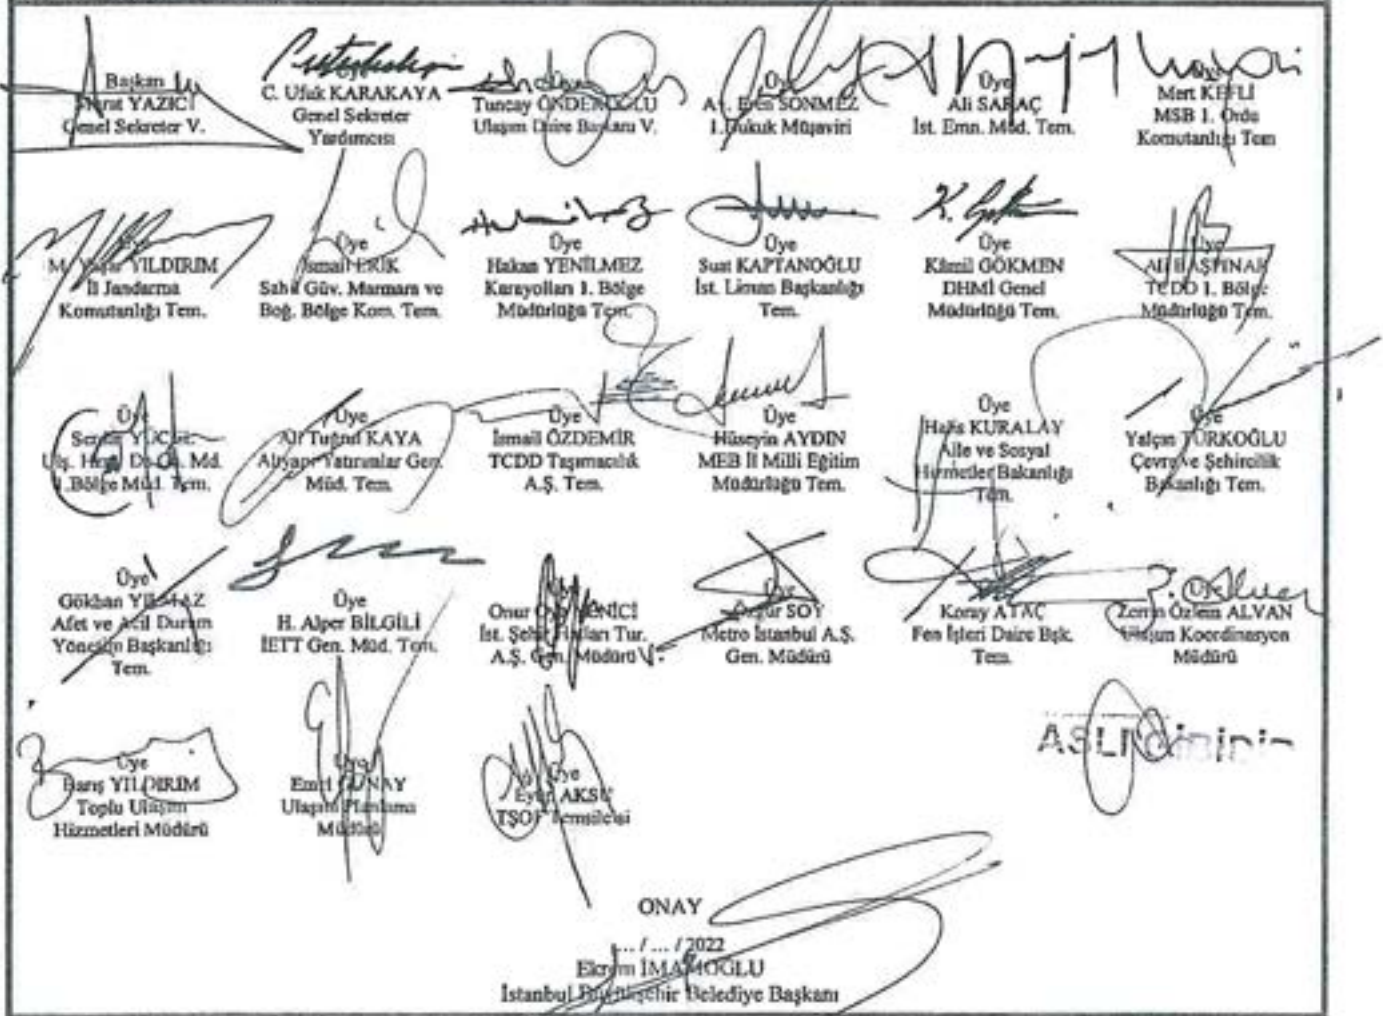 Başkan
Murat YAZICI
Genel Sekreter V.
C. Ufuk KARAKAYA
Genel Sekreter
Yardımcısı
Üye
Tuncay ÖNDEROĞLU
Ulaşım Daire Başkanı V.
Üye
Av. Eren SÖNMEZ
1.Hukuk Müşaviri
Üye
Ali SARAÇ
İst. Emn. Müd. Tem.
Üye
Mert KEFLİ
MSB 1. Ordu
Komutanlığı Tem
Üye
M. Yaşar YILDIRIM
İl Jandarma
Komutanlığı Tem.
Üye
İsmail ERİK
Sahil Güv. Marmara ve
Boğ. Bölge Kom. Tem.
Üye
Hakan YENİLMEZ
Karayolları 1. Bölge
Müdürlüğü Tem.
Üye
Suat KAPTANOĞLU
İst. Liman Başkanlığı
Tem.
Üye
Kâmil GÖKMEN
DHMİ Genel
Müdürlüğü Tem.
Üye
TCDD 1. Bölge
Müdürlüğü Tem.
Üye
Serdar YÜCEL
Md.
1.Bölge Müd. Tem.
Üye
Ali Tuğrul KAYA
Altyapı Yatırımlar Gen.
Müd. Tem.
Üye
İsmail ÖZDEMİR
TCDD Taşımacılık
A.Ş. Tem.
Üye
Hüseyin AYDIN
MEB İl Milli Eğitim
Müdürlüğü Tem.
Üye
Halis KURALAY
Aile ve Sosyal
Hizmetler Bakanlığı
Tem.
Üye
Yalçın TÜRKOĞLU
Çevre ve Şehircilik
Bakanlığı Tem.
Üye
Gökhan YILMAZ
Afet ve Acil Durum
Yönetim Başkanlığı
Tem.
Üye
H. Alper BİLGİLİ
İETT Gen. Müd. Tem.
Onur YENİCİ
İst. Şehir Hatları Tur.
A.Ş. Gen. Müdürü V.
Üye
Özgür SOY
Metro İstanbul A.Ş.
Gen. Müdürü
Koray ATAÇ
Fen İşleri Daire Bşk.
Tem.
Özlem ALVAN
Ulaşım Koordinasyon
Müdürü
Üye
Barış YILDIRIM
Toplu Ulaşım
Hizmetleri Müdürü
Üye
GÜNAY
Ulaşım Planlama
Müdürü
Üye
Eyüp AKSU
TŞOF Temsilcisi
ASLI GİBİDİR
ONAY
... / ... / 2022
Ekrem İMAMOĞLU
İstanbul Büyükşehir Belediye Başkanı